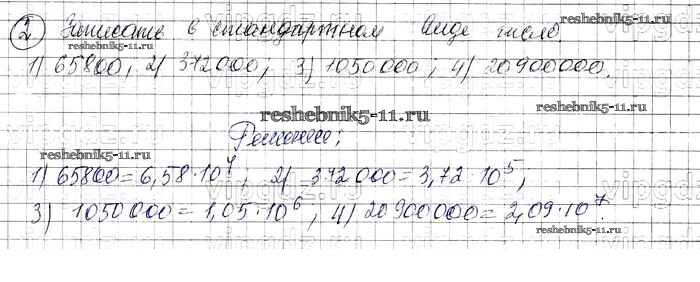 2 Записать в стандартном виде число
reshebnik5-11.ru
reshebnik5-11.ru
1) 65800, 2) 372000; 3) 1050000; 4) 20900000.
reshebnik5-11.ru
Решение:
reshebnik5-11.ru
1) 65800=6,58·10⁴; 2) 372000=3,72·10⁵;
3) 1050000=1,05·10⁶; 4) 20900000=2,09·10⁷.
reshebnik5-11.ru